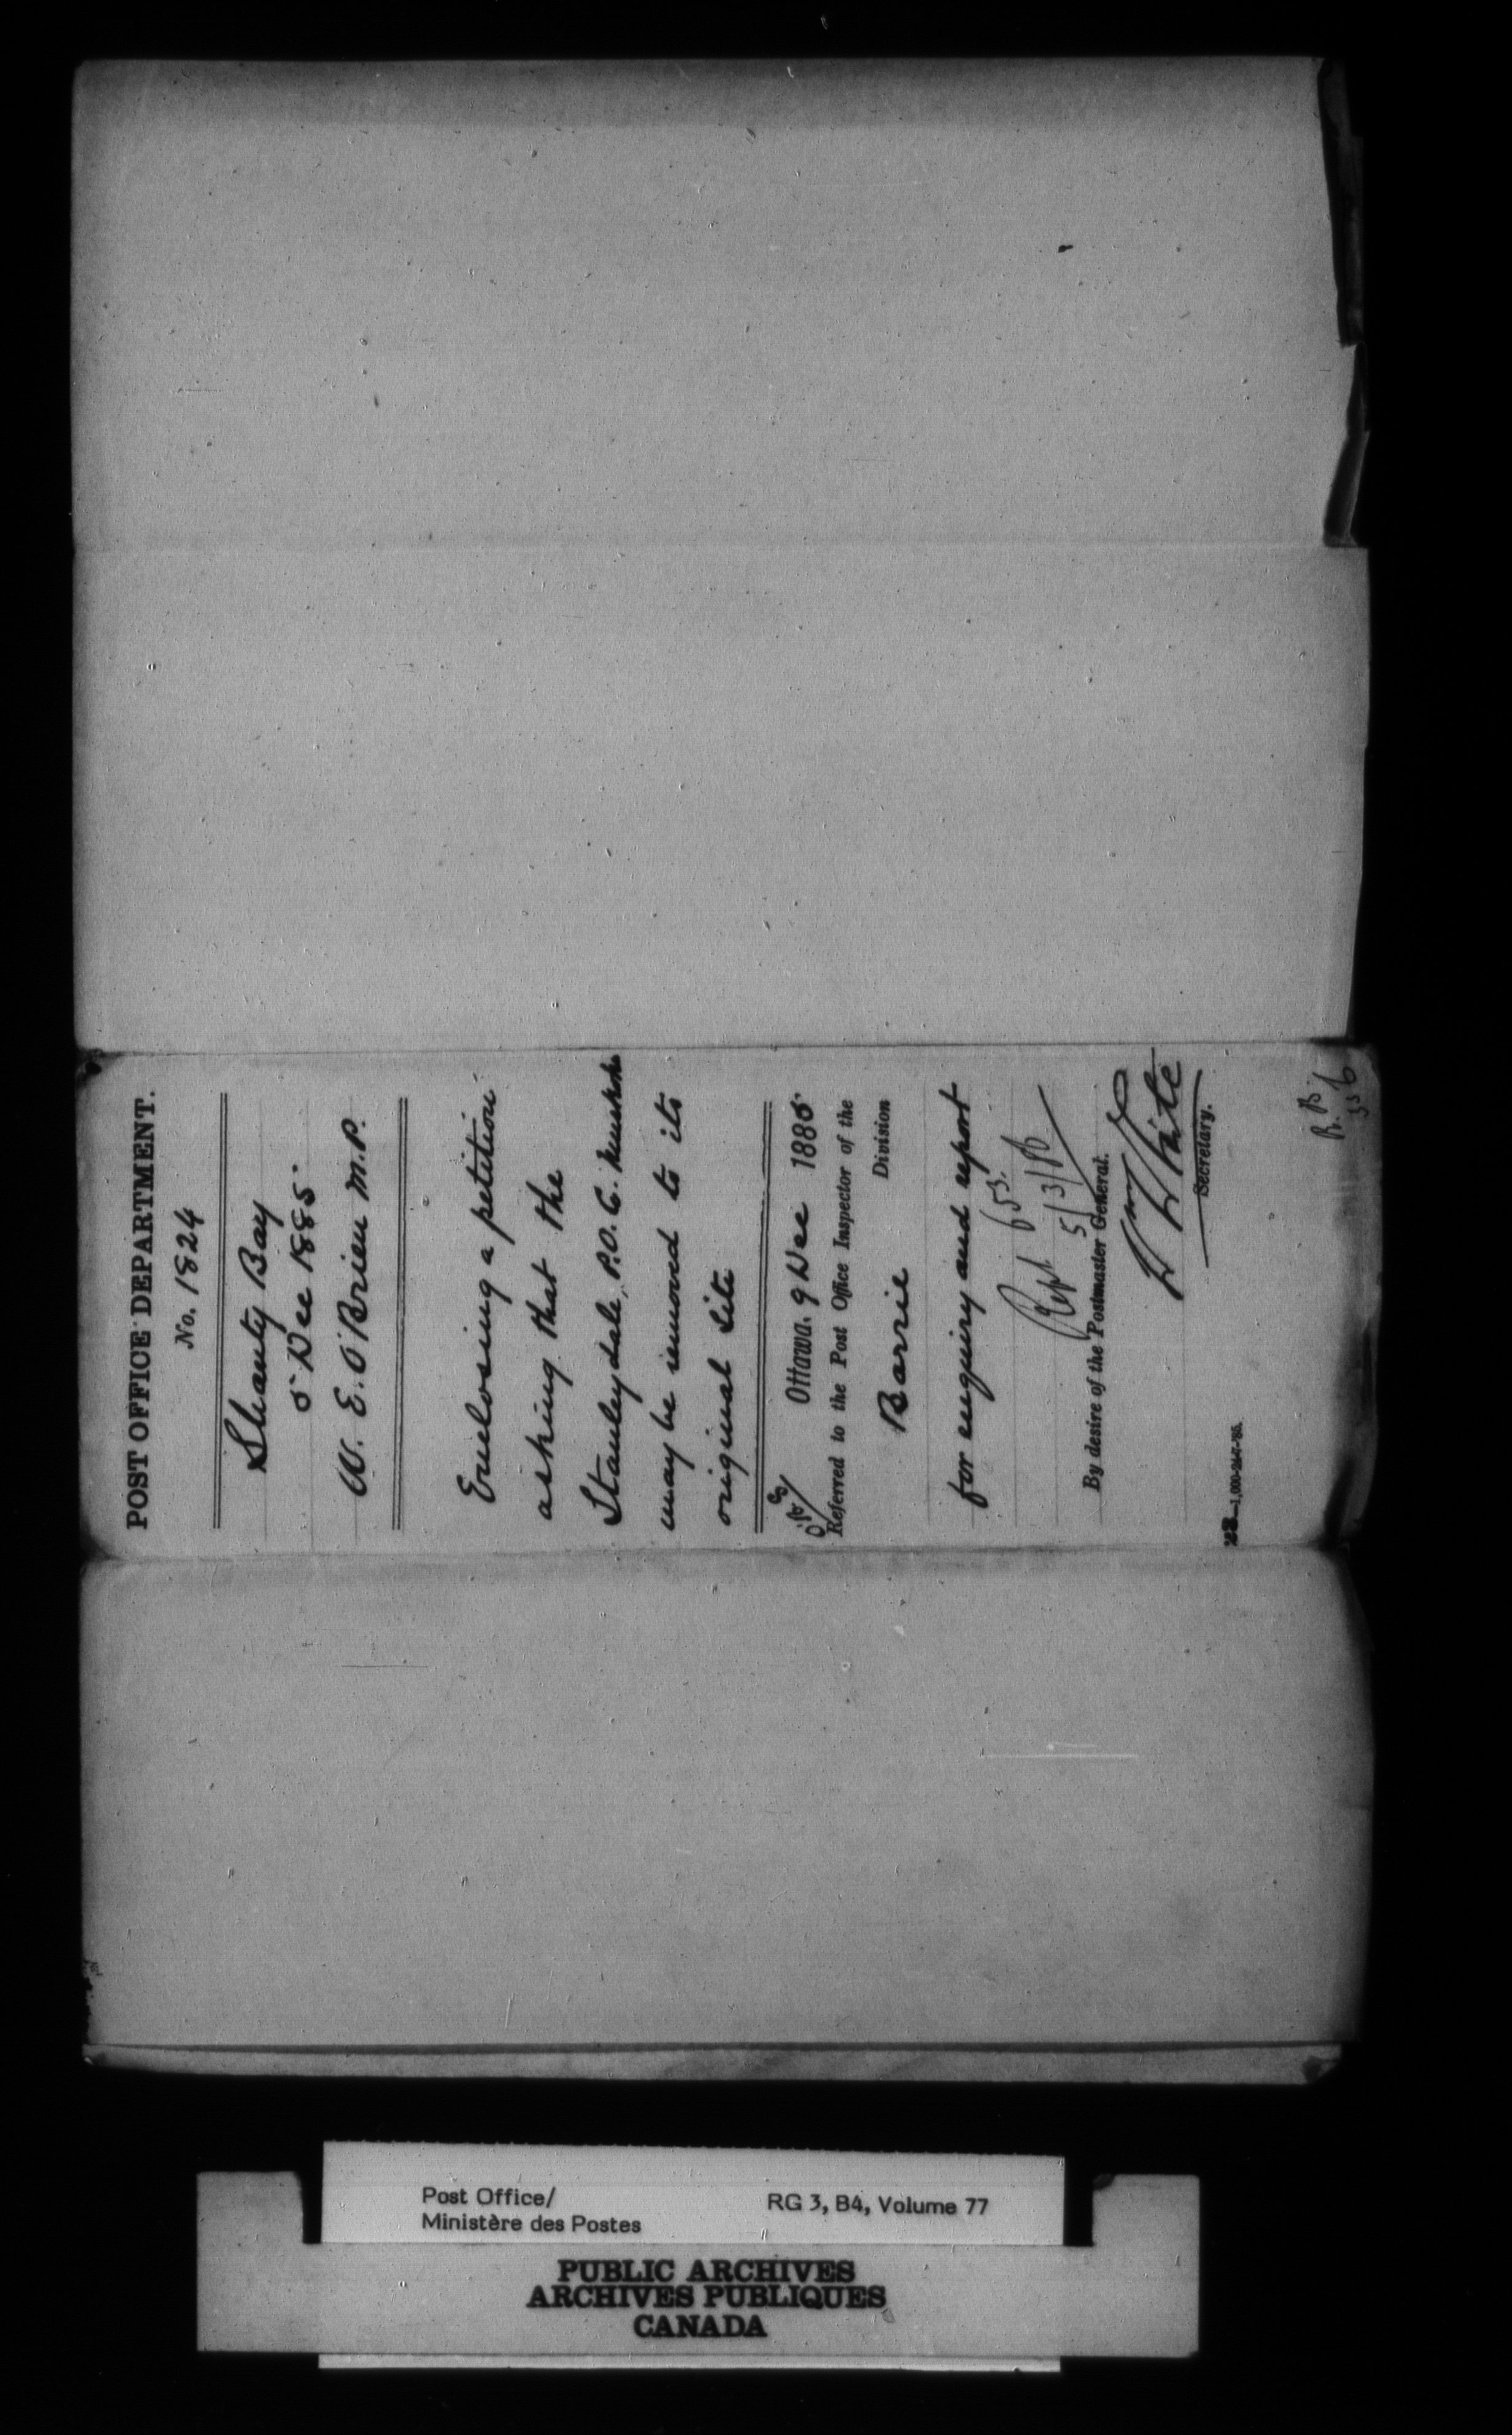 POST OFFICE DEPARTMENT.
No. 1824
Shanty Bay
5 Dec 1885
W. E. O'Brien M.P.
Enclosing a petition
asking that the
Stanleydale, P.O.
may be removed to its
original site
Ottawa. 9 Dec 1885
Referred to the Post Office Inspector of the
Barrie Division
for enquiry and report
Rept 653.
5/3/86
By desire of the Postmaster General.
Wm White
Secretary.
—1,000-24-7-'85.
Post Office/
Ministère des Postes
RG 3, B4, Volume 77
PUBLIC ARCHIVES
ARCHIVES PUBLIQUES
CANADA